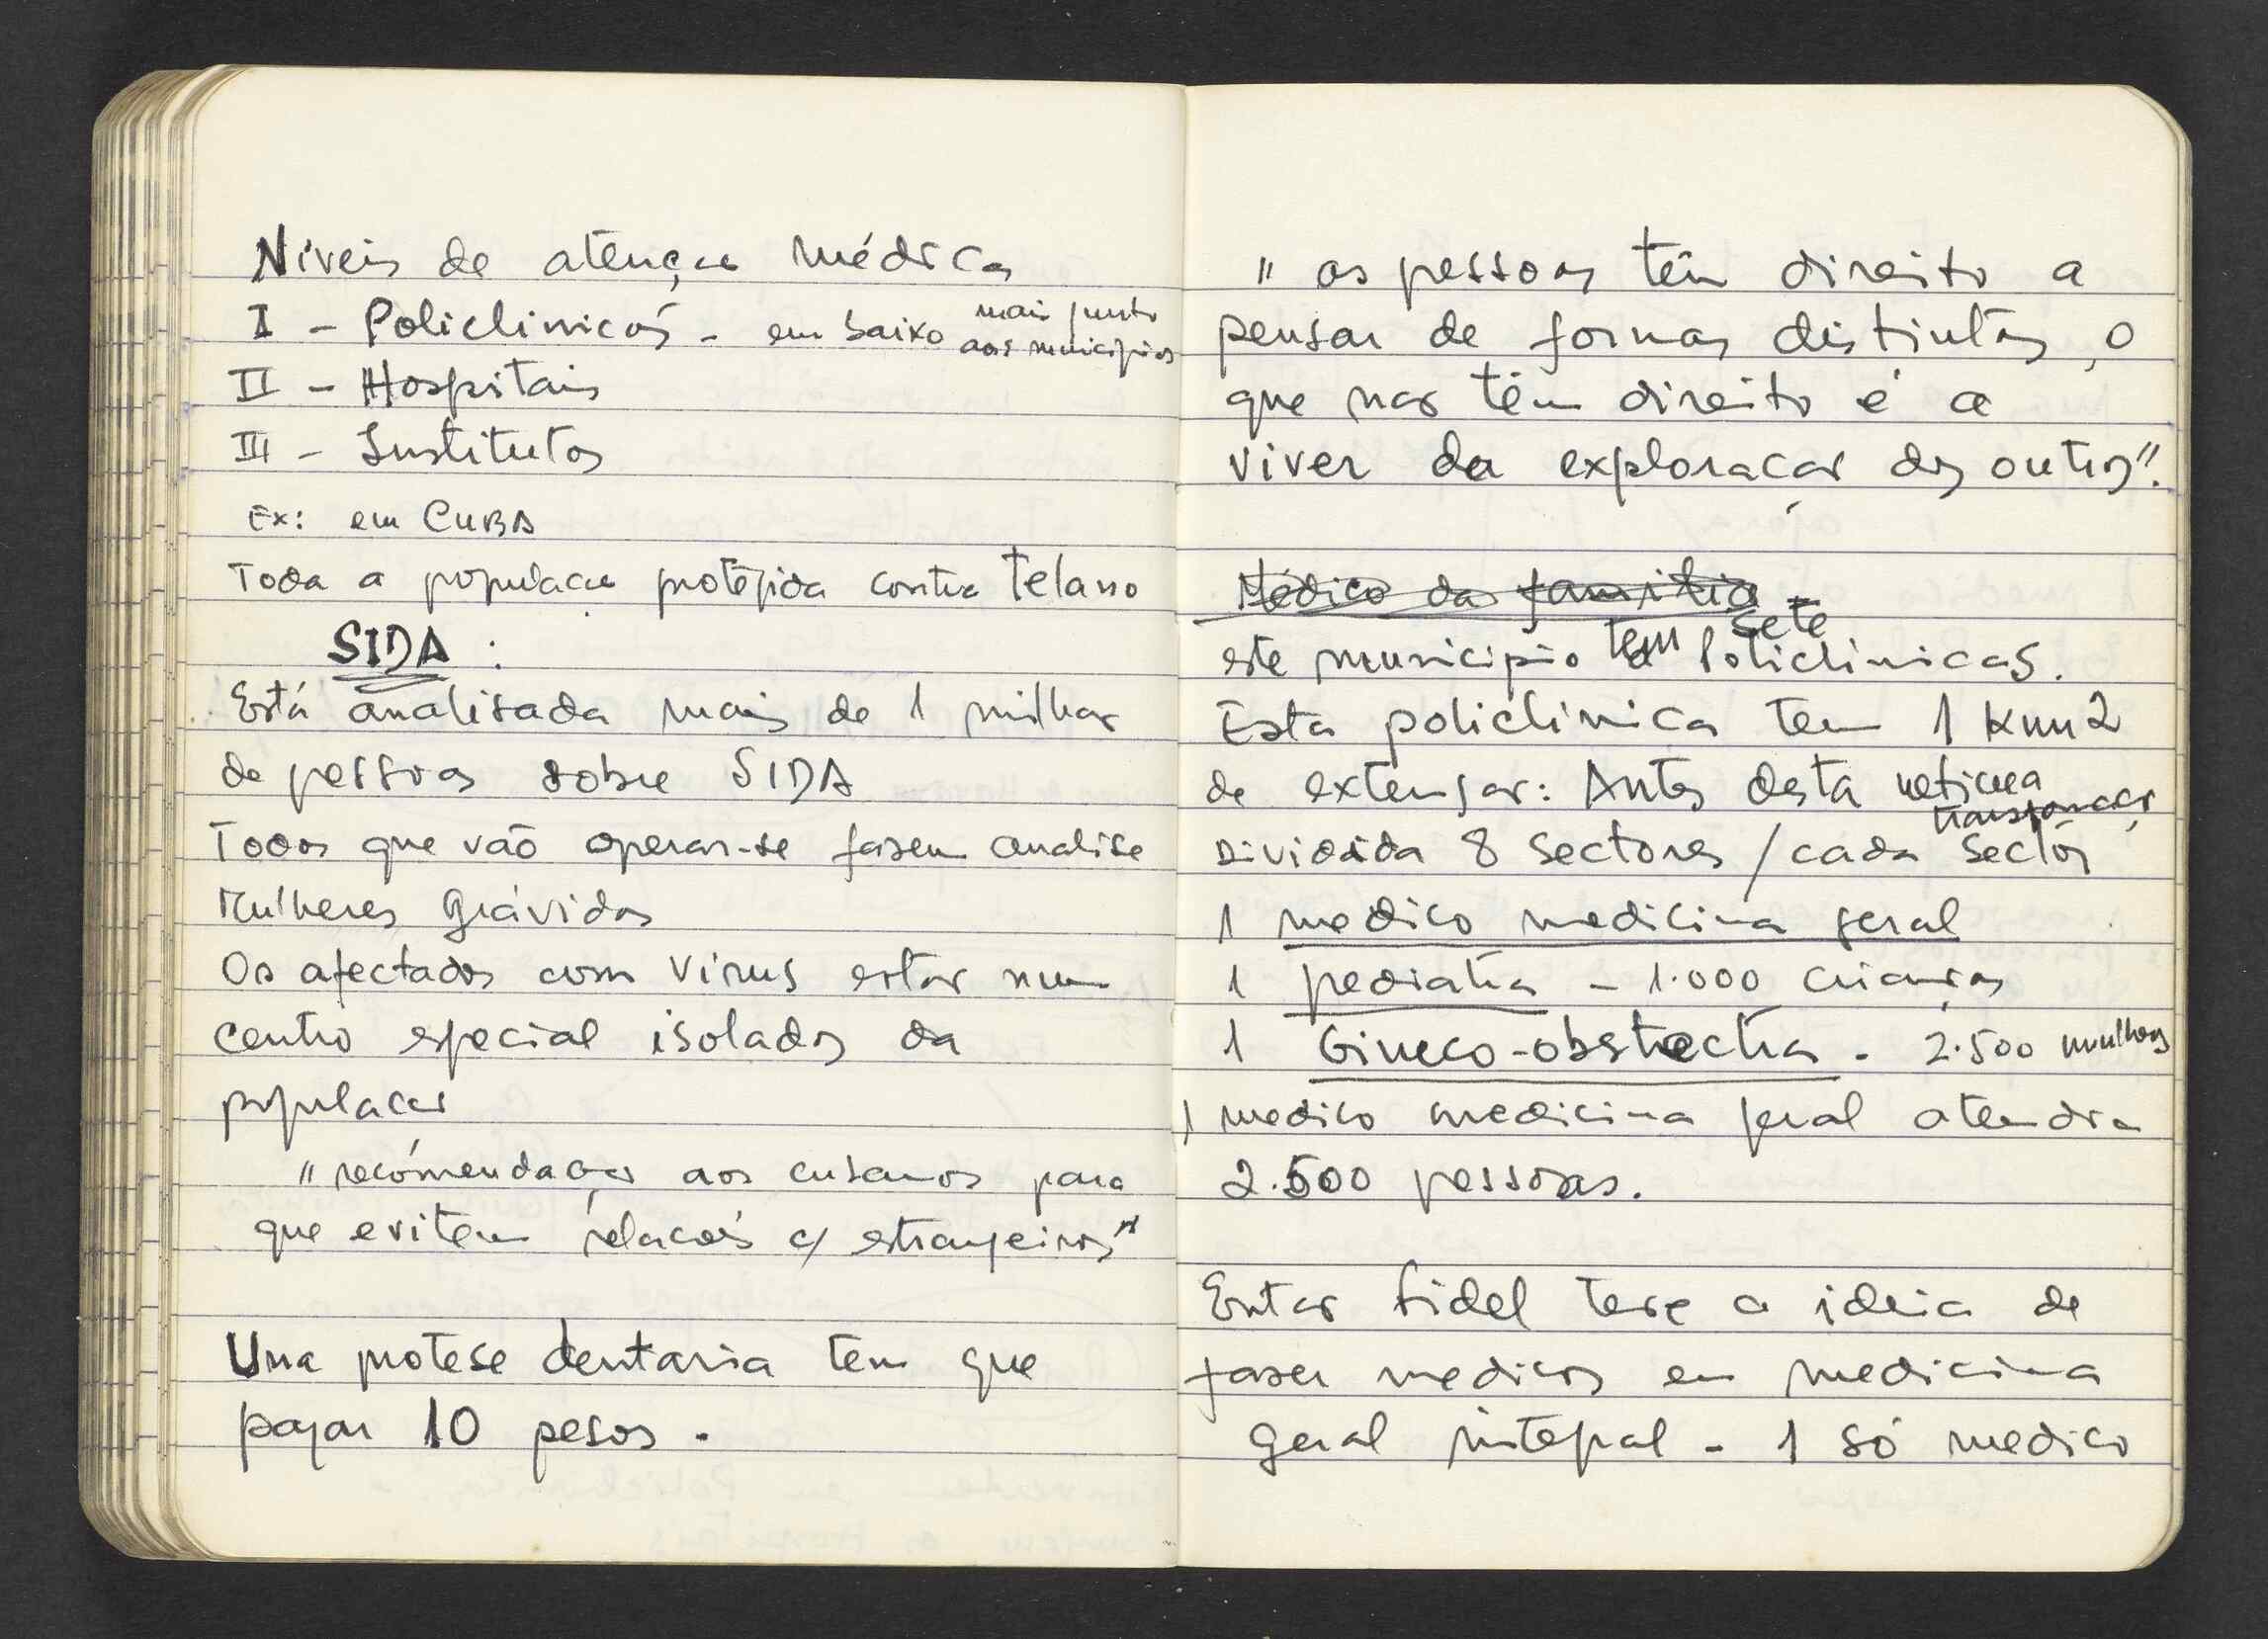 Níveis de atenção médica
I - Policlinicos - em baixo mais junto
aos municipios
II - Hospitais
III - Institutos
Ex: em CUBA
Toda a população protegida contra Tetano
SIDA :
Está analisada mais de 1 milhão
de pessoas sobre SIDA
Todos que vão operar-se fazem analise
Mulheres Grávidas
Os afectados com Virus estão num
centro especial isolados da
população
"recomendação aos cubanos para
que evitem relações c/ estrangeiros"
Uma protese dentaria tem que
pagar 10 pesos.
" as pessoas têm direito a
pensar de formas distintas, o
que não têm direito é a
viver da exploração dos outros".
Médico da familia
este municipio tem sete Policlinicas.
Esta policlinica tem 1 Km2
de extensão: Antes desta
transformação
Dividida 8 sectores / cada sector
1 medico medicina geral
1 pediatra - 1.000 crianças
1 Gineco-obstectra - 2.500 mulheres
1 medico medicina geral atendia
2.500 pessoas.
Então Fidel teve a ideia de
fazer medicos em medicina
geral integral - 1 só medico